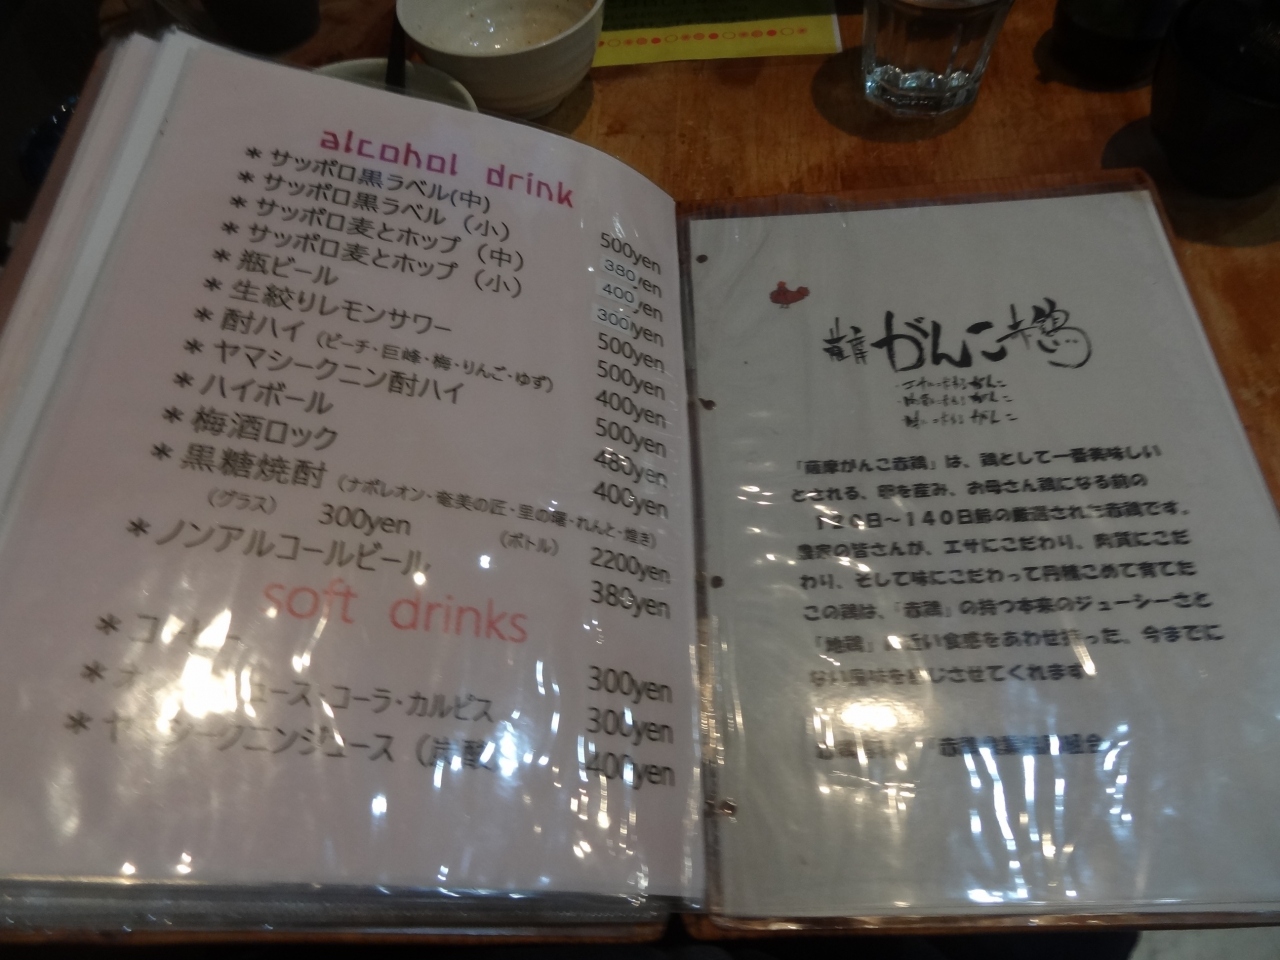 alcohol drink
* サッポロ黒ラベル(中) 500yen
* サッポロ黒ラベル (小) 380yen
* サッポロ麦とホップ (中) 400yen
* サッポロ麦とホップ (小) 300yen
* 瓶ビール 500yen
* 生絞りレモンサワー 500yen
* 酎ハイ (ピーチ・巨峰・梅・りんご・ゆず) 400yen
* ヤマシークニン酎ハイ 500yen
* ハイボール 480yen
* 梅酒ロック 400yen
* 黒糖焼酎 (ナポレオン・奄美の匠・里の曙・れんと・煌き)
(グラス) 300yen (ボトル) 2200yen
* ノンアルコールビール 380yen
soft drinks
* コーヒー 300yen
* ース・コーラ・カルピス 300yen
* クニンジュース 400yen
薩摩 がんこ赤鶏
「薩摩がんこ赤鶏」は、鶏として一番美味しい
とされる、卵を産み、お母さん鶏になる前の
120日~140日齢の厳選された赤鶏です。
農家の皆さんが、エサにこだわり、肉質にこだ
わり、そして味にこだわって丹精こめて育てた
この鶏は、「赤鶏」の持つ本来のジューシーさと
「地鶏」に近い食感をあわせ持った、今までに
ない風味を感じさせてくれます